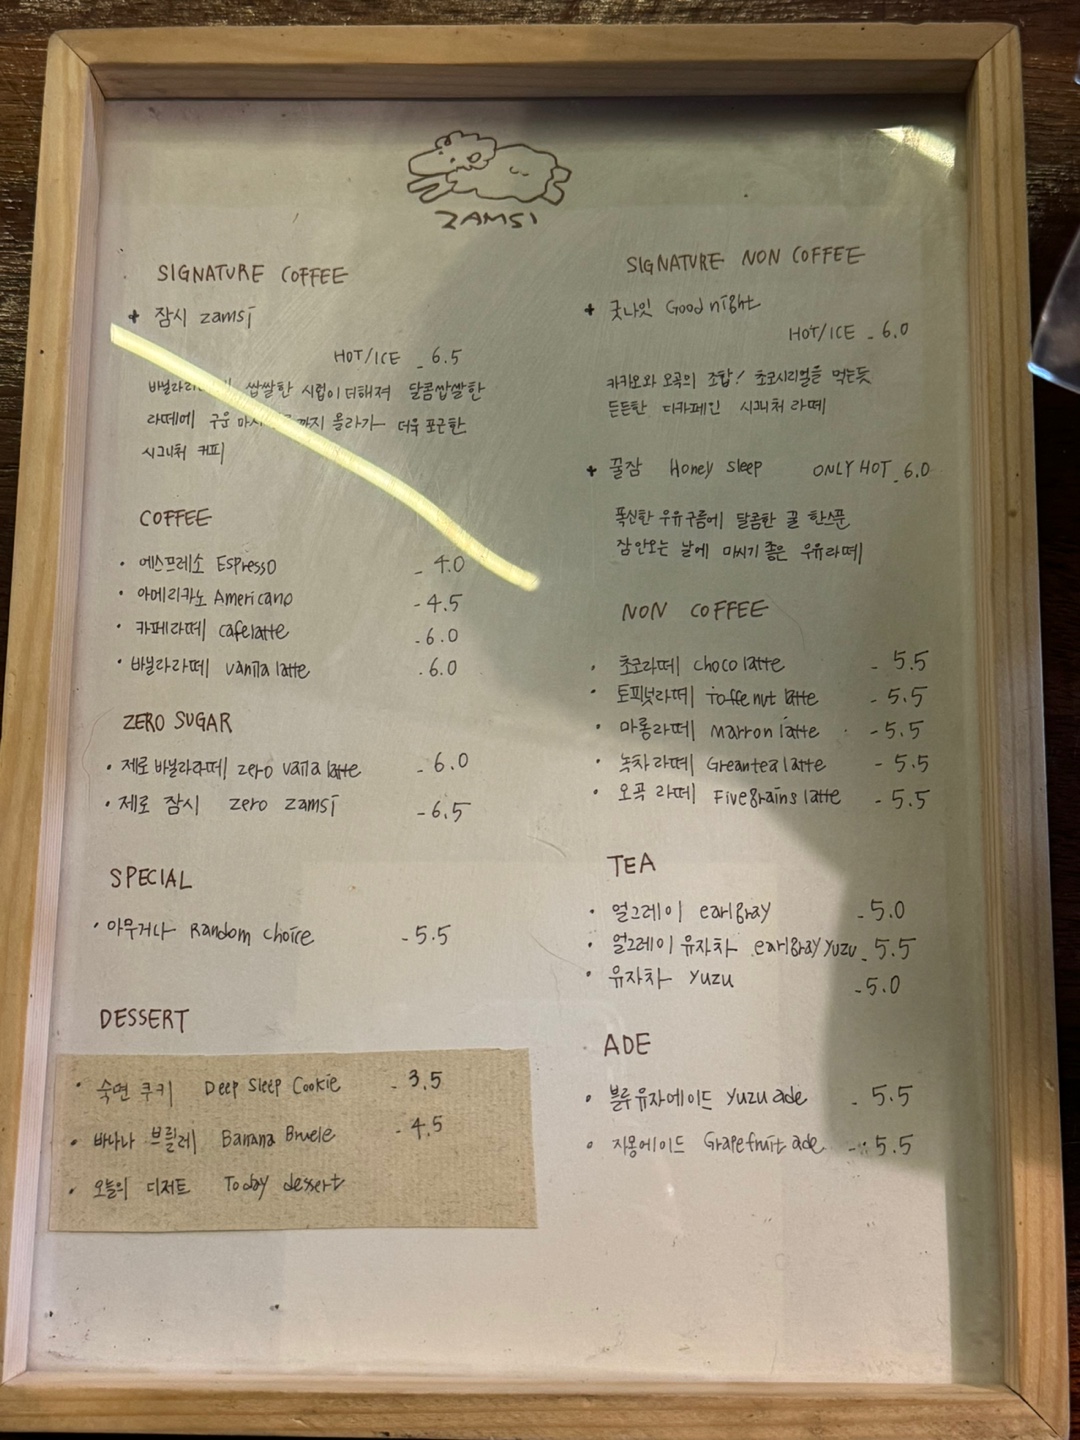 ZAMSI
SIGNATURE COFFEE
+ 잠시 zamsi
HOT/ICE - 6.5
쌉쌀한 시럽이 더해져 달콤쌉쌀한
라떼에 구운 까지 올라가 더욱 포근한
시그니처 커피
COFFEE
· 에스프레소 Espresso - 4.0
· 아메리카노 Americano - 4.5
· 카페라떼 cafelatte - 6.0
· 바닐라라떼 vanila latte - 6.0
ZERO SUGAR
· 제로 바닐라라떼 zero vaila latte - 6.0
· 제로 잠시 zero zamsi - 6.5
SPECIAL
· 아무거나 Random choice - 5.5
DESSERT
· 숙면 쿠키 Deep sleep Cookie - 3.5
· 바나나 브륄레 Banana Bruele - 4.5
· 오늘의 디저트 Today dessert
SIGNATURE NON COFFEE
+ 굿나잇 Good night
HOT/ICE - 6.0
카카오와 오곡의 조합! 초코시리얼을 먹는듯
든든한 디카페인 시그니처 라떼
+ 꿀잠 Honey sleep ONLY HOT - 6.0
폭신한 우유구름에 달콤한 꿀 한스푼
잠 안오는 날에 마시기 좋은 우유라떼
NON COFFEE
· 초코라떼 choco latte - 5.5
· 토피넛라떼 toffe nut latte - 5.5
· 마롱라떼 marron latte - 5.5
· 녹차라떼 Greantea latte - 5.5
· 오곡 라떼 Five grains latte - 5.5
TEA
· 얼그레이 earlgray - 5.0
· 얼그레이 유자차 earlgray yuzu - 5.5
· 유자차 yuzu - 5.0
ADE
· 블루유자에이드 yuzu ade - 5.5
· 자몽에이드 Grapefruit ade - 5.5